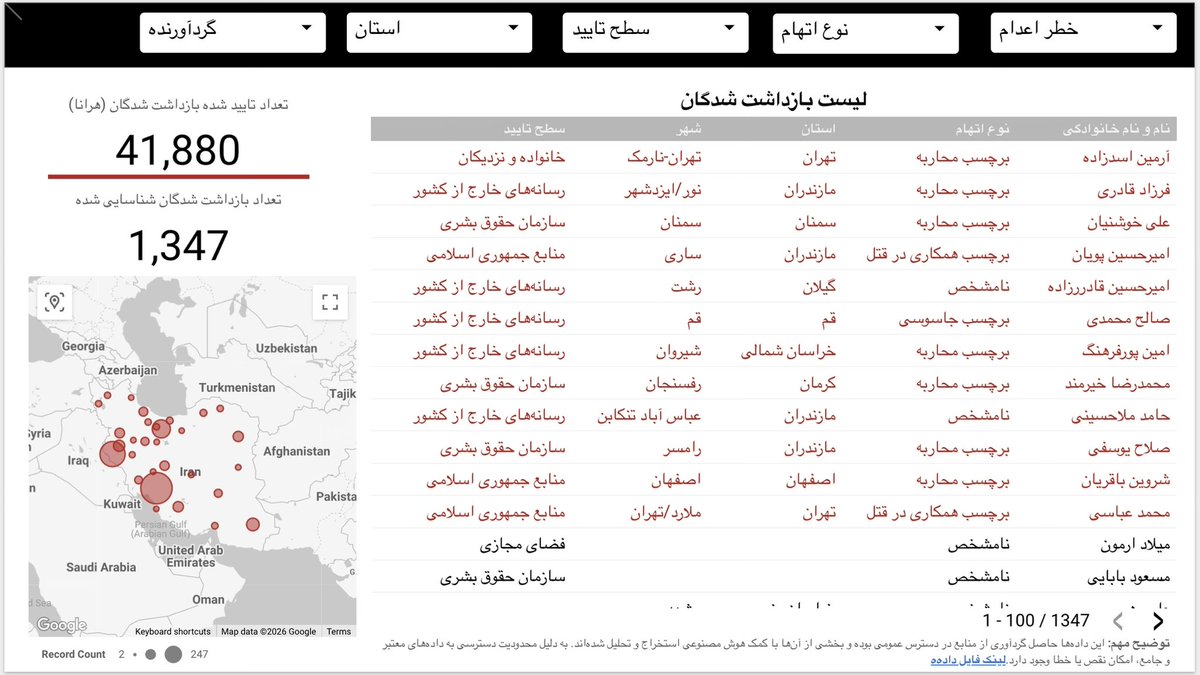 خطر اعدام
نوع اتهام
سطح تایید
استان
گردآورنده
تعداد تایید شده بازداشت شدگان (هرانا)
41,880
تعداد بازداشت شدگان شناسایی شده
1,347
لیست بازداشت شدگان
نام و نام خانوادگی نوع اتهام استان شهر سطح تایید
آرمین اسدزاده برچسب محاربه تهران تهران-نارمک خانواده و نزدیکان
فرزاد قادری برچسب محاربه مازندران نور/ایزدشهر رسانه‌های خارج از کشور
علی خوشنیان برچسب محاربه سمنان سمنان سازمان حقوق بشری
امیرحسین پویان برچسب همکاری در قتل مازندران ساری منابع جمهوری اسلامی
امیرحسین قادررزاده نامشخص گیلان رشت رسانه‌های خارج از کشور
صالح محمدی برچسب جاسوسی قم قم رسانه‌های خارج از کشور
امین پورفرهنگ برچسب محاربه خراسان شمالی شیروان رسانه‌های خارج از کشور
محمدرضا خیرمند برچسب محاربه کرمان رفسنجان سازمان حقوق بشری
حامد ملاحسینی نامشخص مازندران عباس آباد تنکابن رسانه‌های خارج از کشور
صلاح یوسفی برچسب محاربه مازندران رامسر سازمان حقوق بشری
شروین باقریان برچسب محاربه اصفهان اصفهان منابع جمهوری اسلامی
محمد عباسی برچسب همکاری در قتل تهران ملارد/تهران منابع جمهوری اسلامی
میلاد ارمون نامشخص فضای مجازی
مسعود بابایی نامشخص سازمان حقوق بشری
1 - 100 / 1347
توضیح مهم: این داده‌ها حاصل گردآوری از منابع در دسترس عمومی بوده و بخشی از آن‌ها با کمک هوش مصنوعی استخراج و تحلیل شده‌اند. به دلیل محدودیت دسترسی به داده‌های معتبر
و جامع، امکان نقص یا خطا وجود دارد. لینک فایل داده‌ه
Georgia
Uzbekistan
Azerbaijan
Turkmenistan
Tajik
Syria
Iraq
Iran
Afghanistan
Kuwait
Pakista
Persian Gulf
(Arabian Gulf)
United Arab
Emirates
Saudi Arabia
Oman
Google
Keyboard shortcuts Map data ©2026 Google Terms
Record Count 2 247